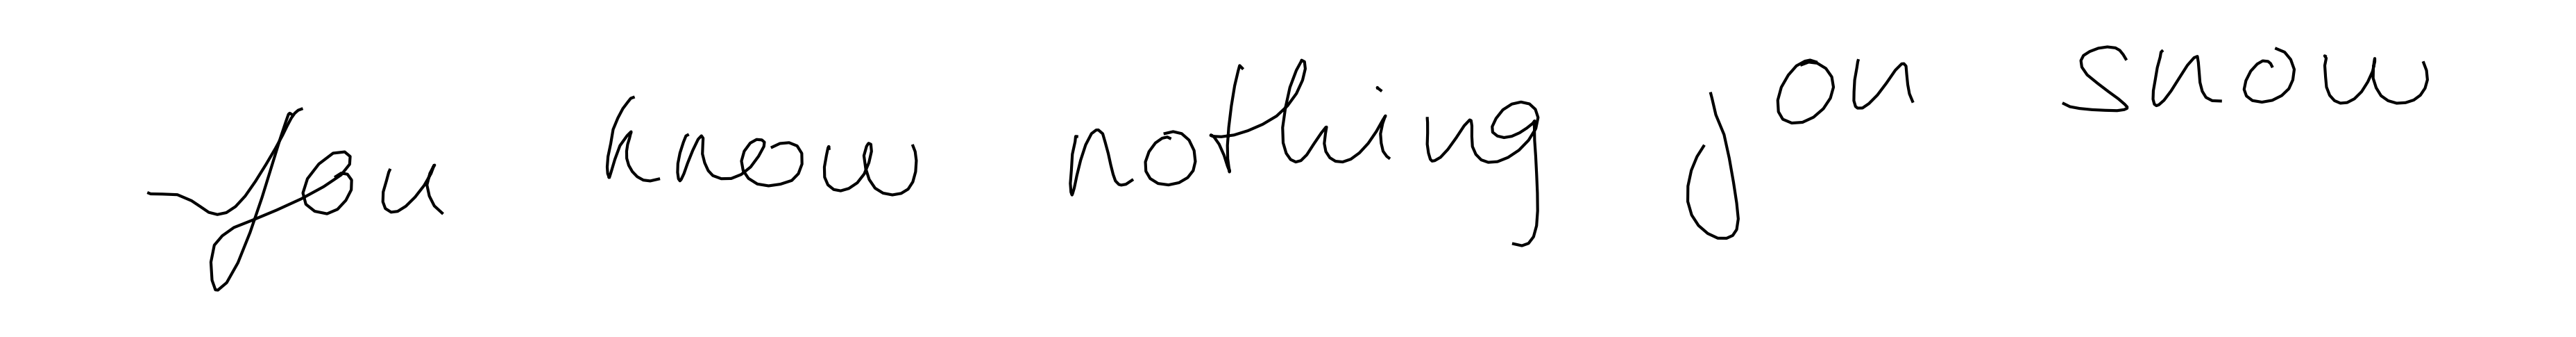 you know nothing jon snow